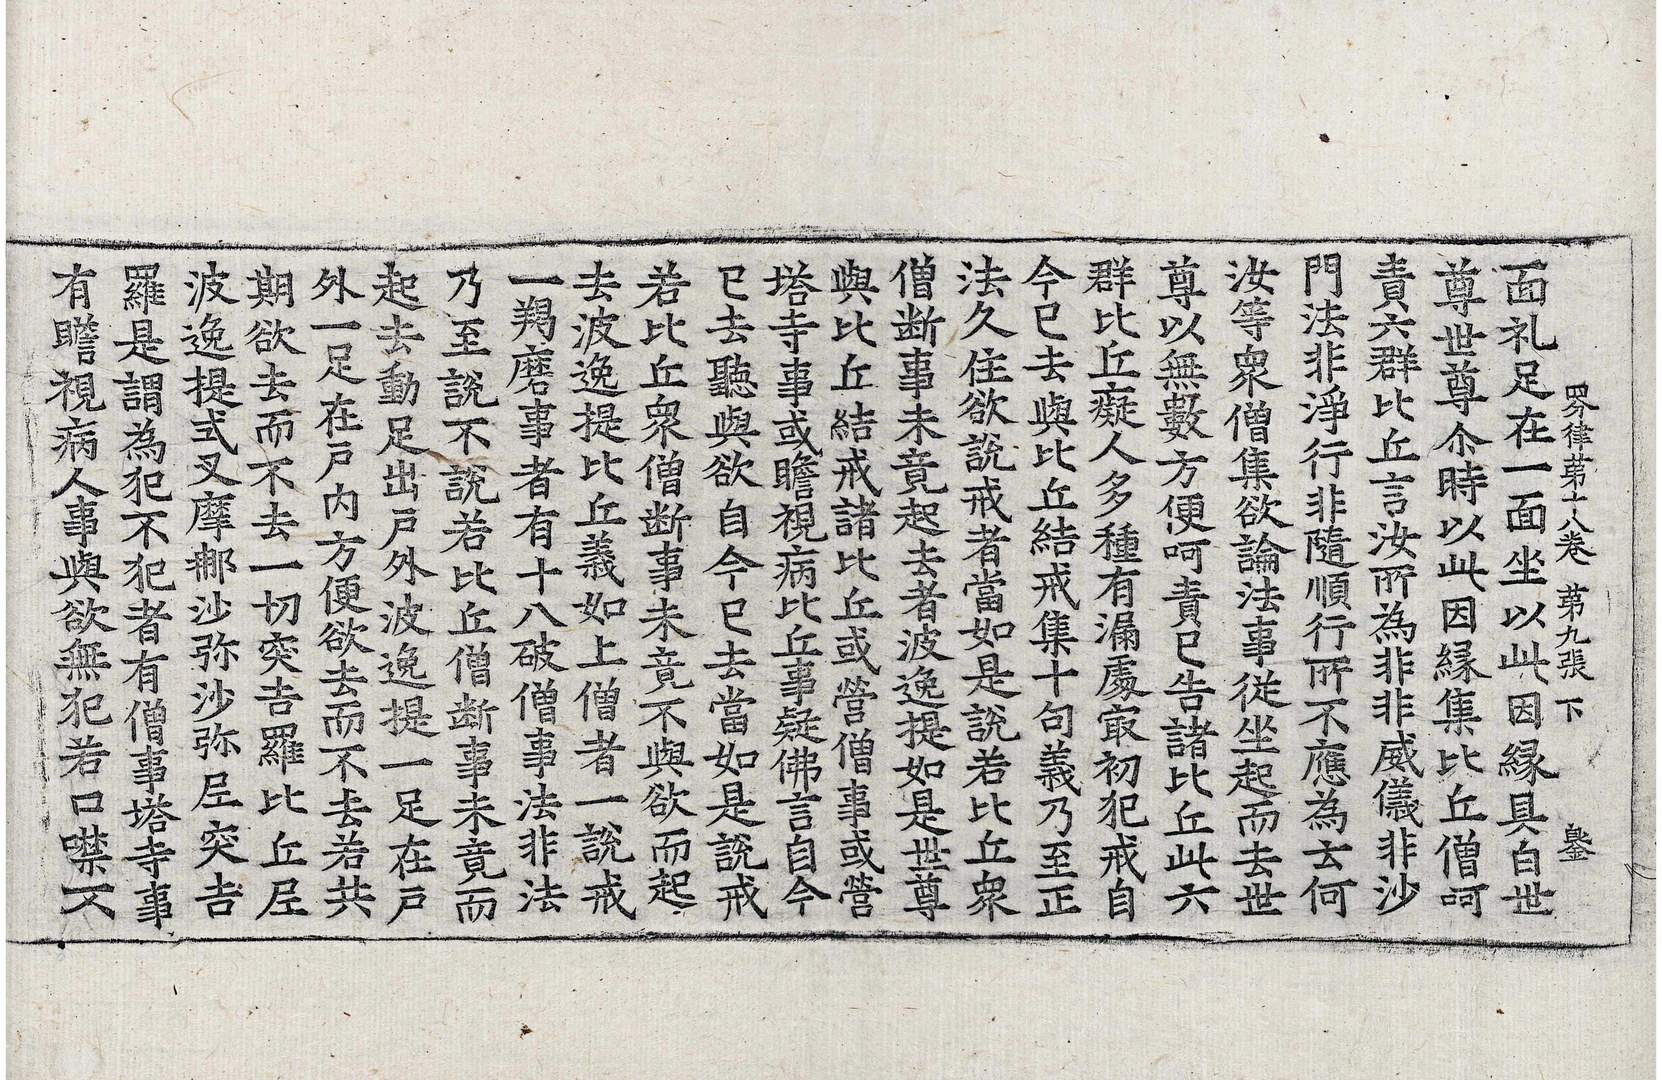 四分律苐十八卷 苐九張 下
面礼足在一面坐以此因縁具白世
尊世尊尒時以此因縁集比丘僧呵
責六群比丘言汝所為非非威儀非沙
門法非淨行非隨順行所不應為云何
汝等衆僧集欲論法事從坐起而去世
尊以無數方便呵責已告諸比丘此六
群比丘癡人多種有漏處㝡初犯戒自
今已去與比丘結戒集十句義乃至正
法久住欲說戒者當如是說若比丘衆
僧断事未竟起去者波逸提如是世尊
與比丘結戒諸比丘或營僧事或營
塔寺事或瞻視病比丘事疑佛言自今
已去聽與欲自今已去當如是說戒
若比丘衆僧断事未竟不與欲而起
去波逸提比丘義如上僧者一說戒
一羯磨事者有十八破僧事法非法
乃至說不說若比丘僧断事未竟而
起去動足出戶外波逸提一足在戶
外一足在戶內方便欲去而不去若共
期欲去而不去一切突吉羅比丘尼
波逸提式叉摩那沙弥沙弥尼突吉
羅是謂為犯不犯者有僧事塔寺事
有瞻視病人事與欲無犯若口噤不